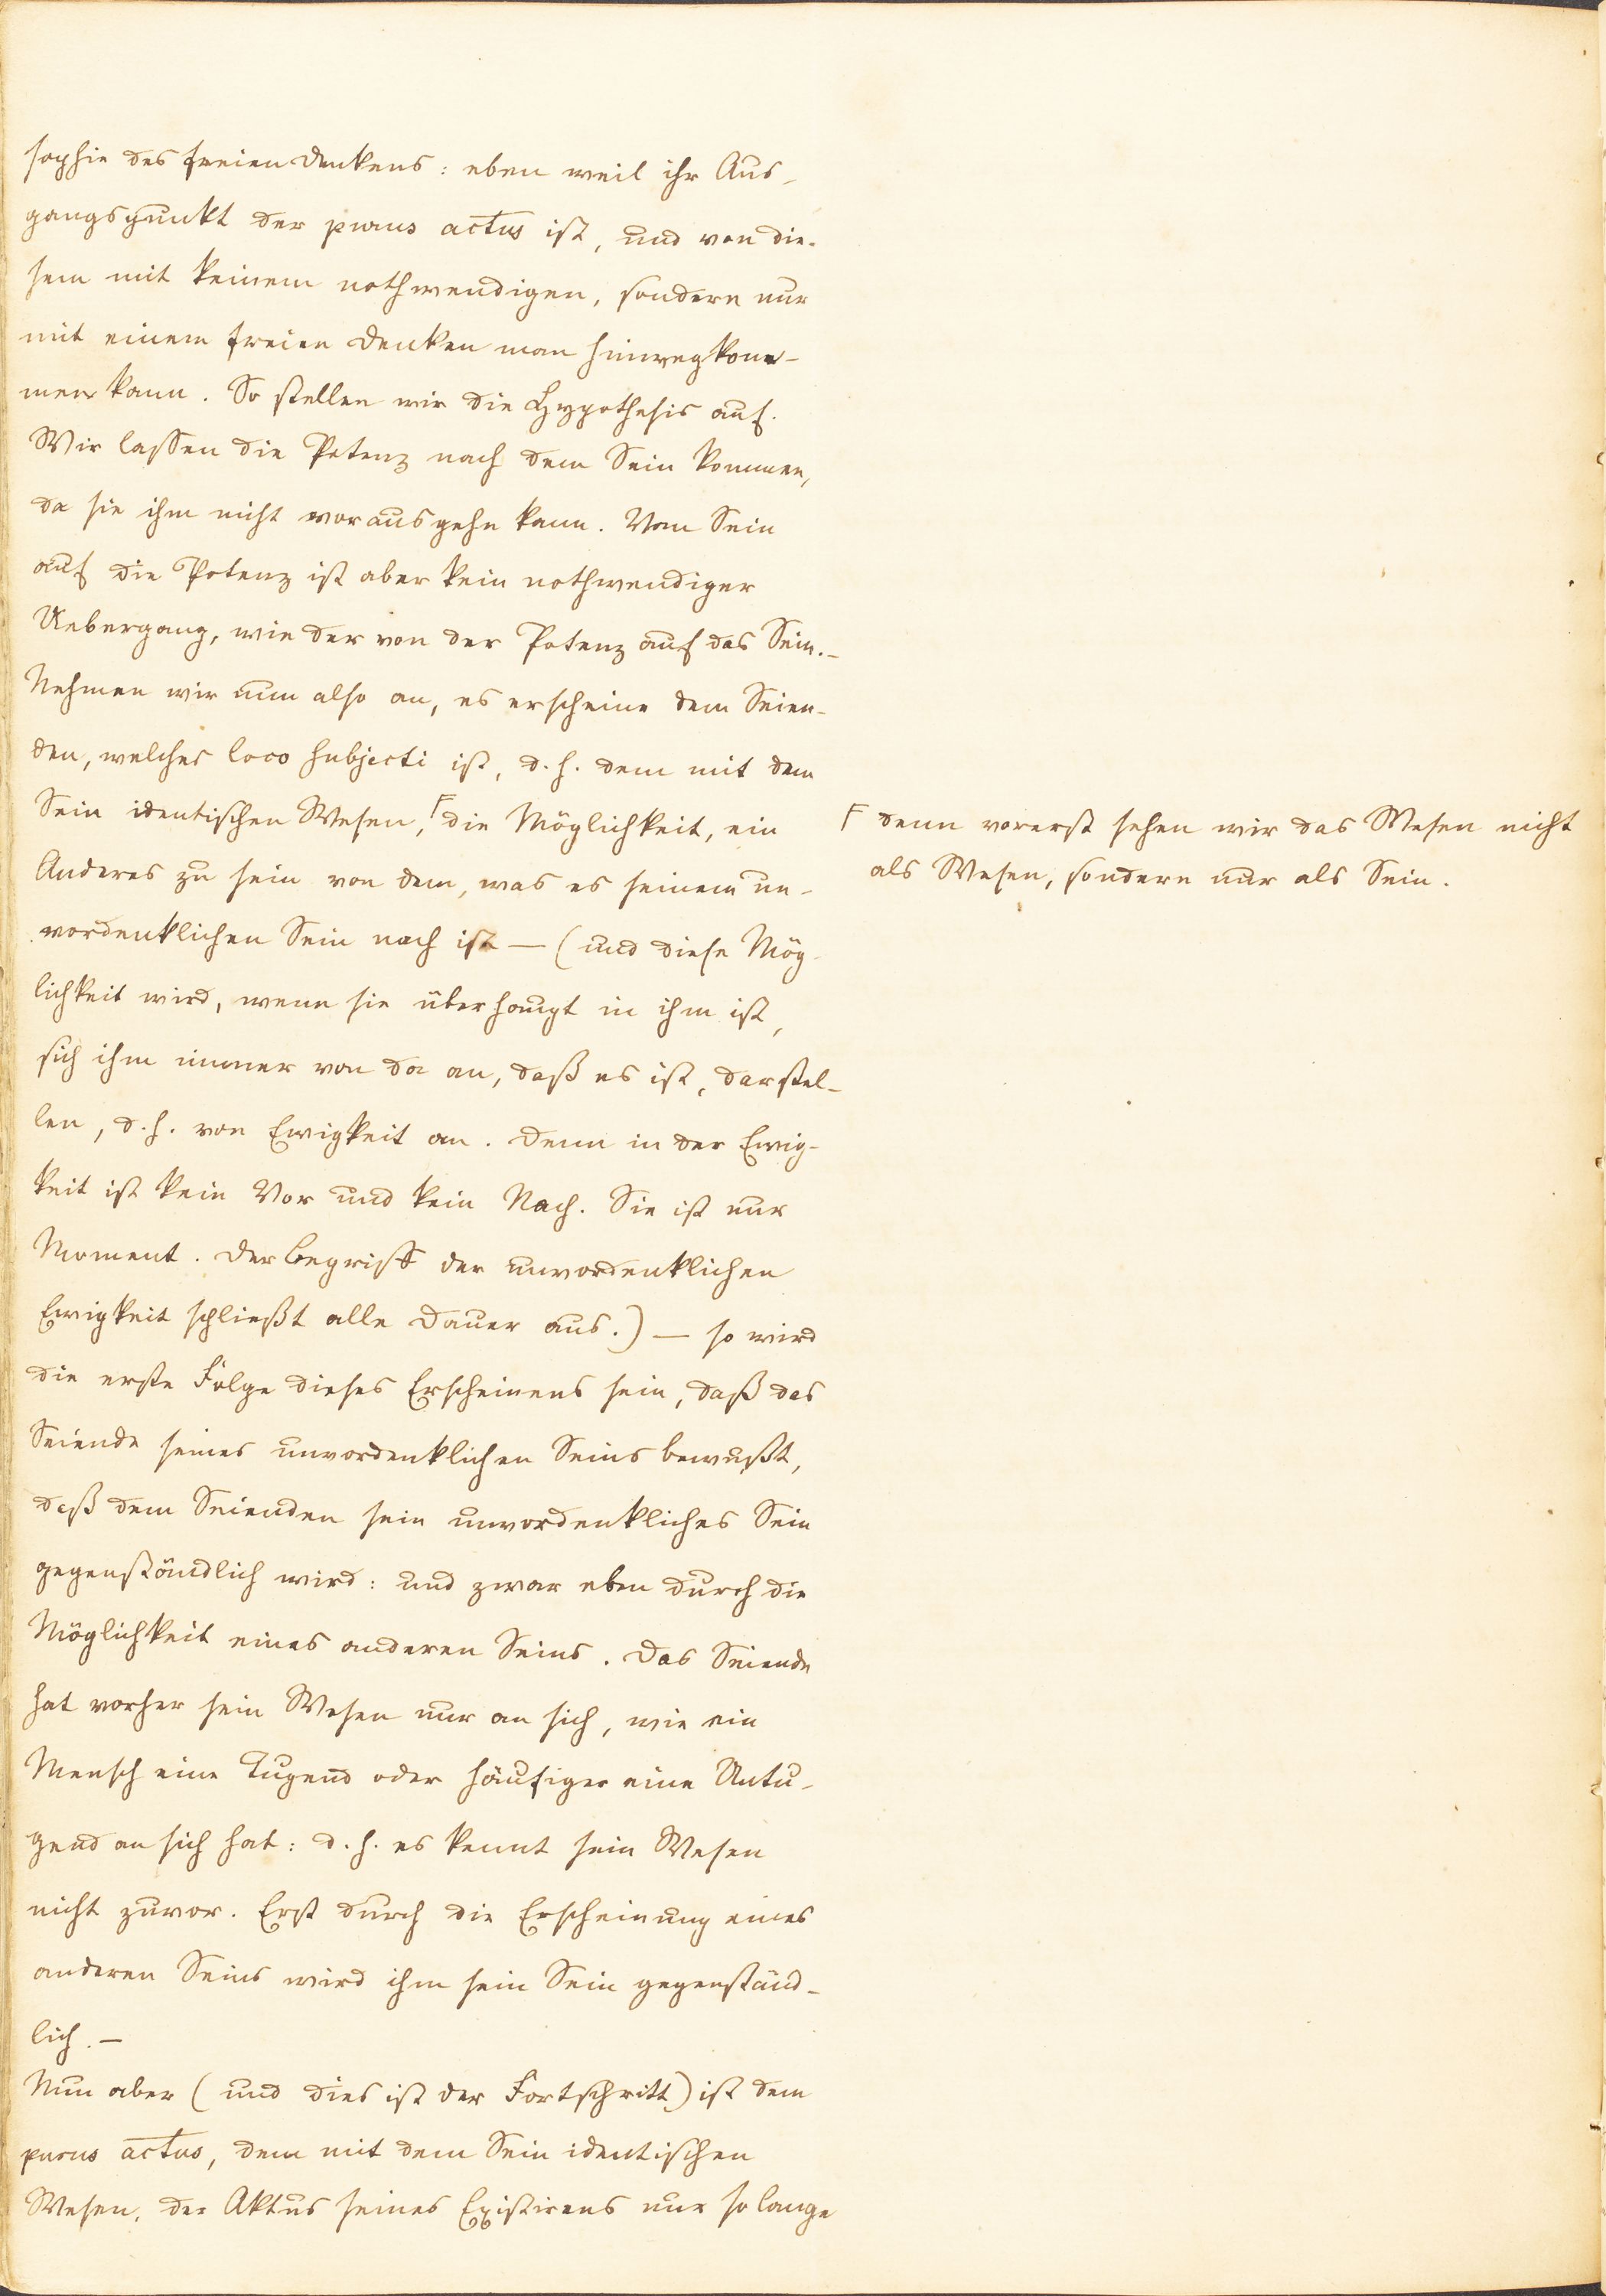 sophie des freien Denkens: eben weil ihr Aus-
gangspunkt der purus actus ist, und von die-
sem mit keinem nothwendigen, sondern nur
mit einem freien Denken man hinwegkom-
men kann. So stellen wir die Hypothesis auf.
Wir lassen die Potenz nach dem Sein kommen,
da sie ihm nicht vorausgehn kann. Vom Sein
auf die Potenz ist aber kein nothwendiger
Uebergang, wie der von der Potenz auf das Sein.-
Nehmen wir nun also an, es erscheine dem Seien-
den, welches loco subjecti ist, d. h. dem mit dem
Sein identischen Wesen,⌈ die Möglichkeit, ein
Anderes zu sein von dem, was es seinem un-
vordenklichen Sein nach ist — (und diese Mög-
lichkeit wird, wenn sie überhaupt in ihm ist,
sich ihm immer von da an, daß es ist, darstel-
len, d. h. von Ewigkeit an. Denn in der Ewig-
keit ist kein Vor und kein Nach. Sie ist nur
Moment. Der Begriff der unvordenklichen
Ewigkeit schließt alle Dauer aus.) — so wird
die erste Folge dieses Erscheinens sein, daß das
Seiende seines unvordenklichen Seins bewußt,
daß dem Seienden sein unvordenkliches Sein
gegenständlich wird: und zwar eben durch die
Möglichkeit eines anderen Seins. Das Seiende
hat vorher sein Wesen nur an sich, wie ein
Mensch eine Tugend oder häufiger eine Untu-
gend an sich hat: d. h. es kennt sein Wesen
nicht zuvor. Erst durch die Erscheinung eines
anderen Seins wird ihm sein Sein gegenständ-
lich. —
Nun aber (und dies ist der Fortschritt) ist dem
purus actus, dem mit dem Sein identischen
Wesen, der Aktus seines Existirens nur so lange
⌈ denn vorerst sehen wir das Wesen nicht
als Wesen, sondern nur als Sein.